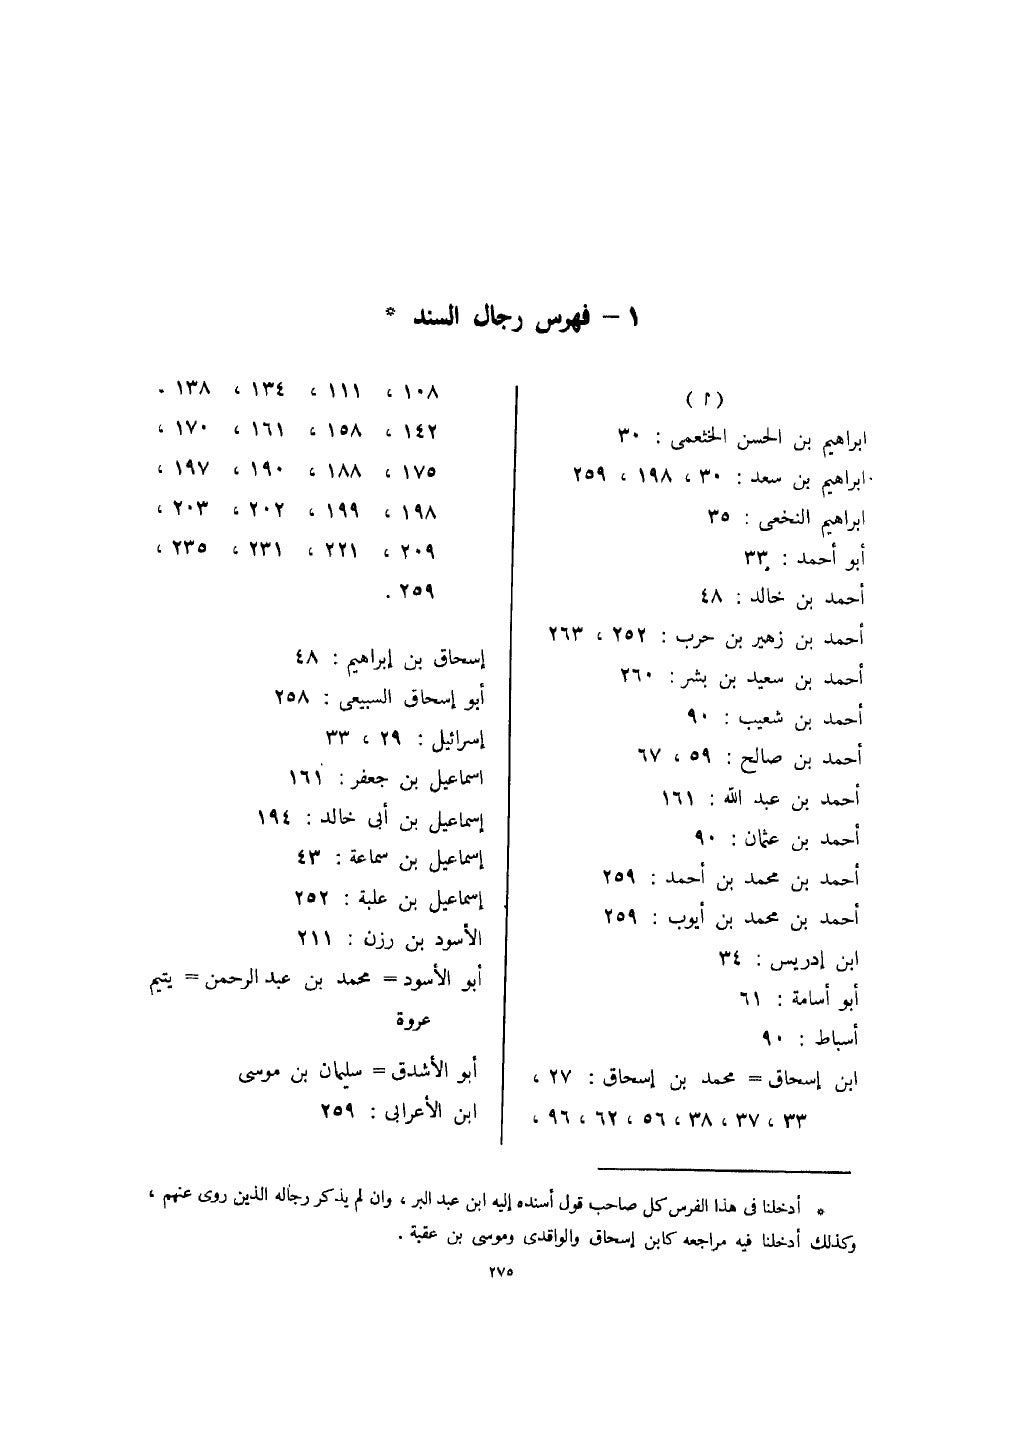 ١ – فهرس رجال السند *
( ا )
ابراهيم بن الحسن الخثعمى : ٣٠
ابراهيم بن سعد : ٣٠ ، ١٩٨ ، ٢٥٩
ابراهيم النخعى : ٣٥
أبو أحمد : ٣٣
أحمد بن خالد : ٤٨
أحمد بن زهير بن حرب : ٢٥٢ ، ٢٦٣
أحمد بن سعيد بن بشر : ٢٦٠
أحمد بن شعيب : ٩٠
أحمد بن صالح : ٥٩ ، ٦٧
أحمد بن عبد الله : ١٦١
أحمد بن عثمان : ٩٠
أحمد بن محمد بن أحمد : ٢٥٩
أحمد بن محمد بن أيوب : ٢٥٩
ابن إدريس : ٣٤
أبو أسامة : ٦١
أسباط : ٩٠
ابن إسحاق = محمد بن إسحاق : ٢٧ ،
٣٣ ، ٣٧ ، ٣٨ ، ٥٦ ، ٦٢ ، ٩٦ ،
١٠٨ ، ١١١ ، ١٣٤ ، ١٣٨ .
١٤٢ ، ١٥٨ ، ١٦١ ، ١٧٠ ،
١٧٥ ، ١٨٨ ، ١٩٠ ، ١٩٧ ،
١٩٨ ، ١٩٩ ، ٢٠٢ ، ٢٠٣ ،
٢٠٩ ، ٢٢١ ، ٢٣١ ، ٢٣٥ ،
٢٥٩ .
إسحاق بن إبراهيم : ٤٨
أبو إسحاق السبيعى : ٢٥٨
إسرائيل : ٢٩ ، ٣٣
اسماعيل بن جعفر : ١٦١
إسماعيل بن أبى خالد : ١٩٤
إسماعيل بن سماعة : ٤٣
إسماعيل بن علبة : ٢٥٢
الأسود بن رزن : ٢١١
أبو الأسود = محمد بن عبد الرحمن = يتيم
عروة
أبو الأشدق = سليمان بن موسى
ابن الأعرابى : ٢٥٩
* أدخلنا فى هذا الفرس كل صاحب قول أسنده إليه ابن عبد البر ، وان لم يذكر رجاله الذين روى عنهم ،
وكذلك أدخلنا فيه مراجعه كابن إسحاق والواقدى وموسى بن عقبة .
٢٧٥